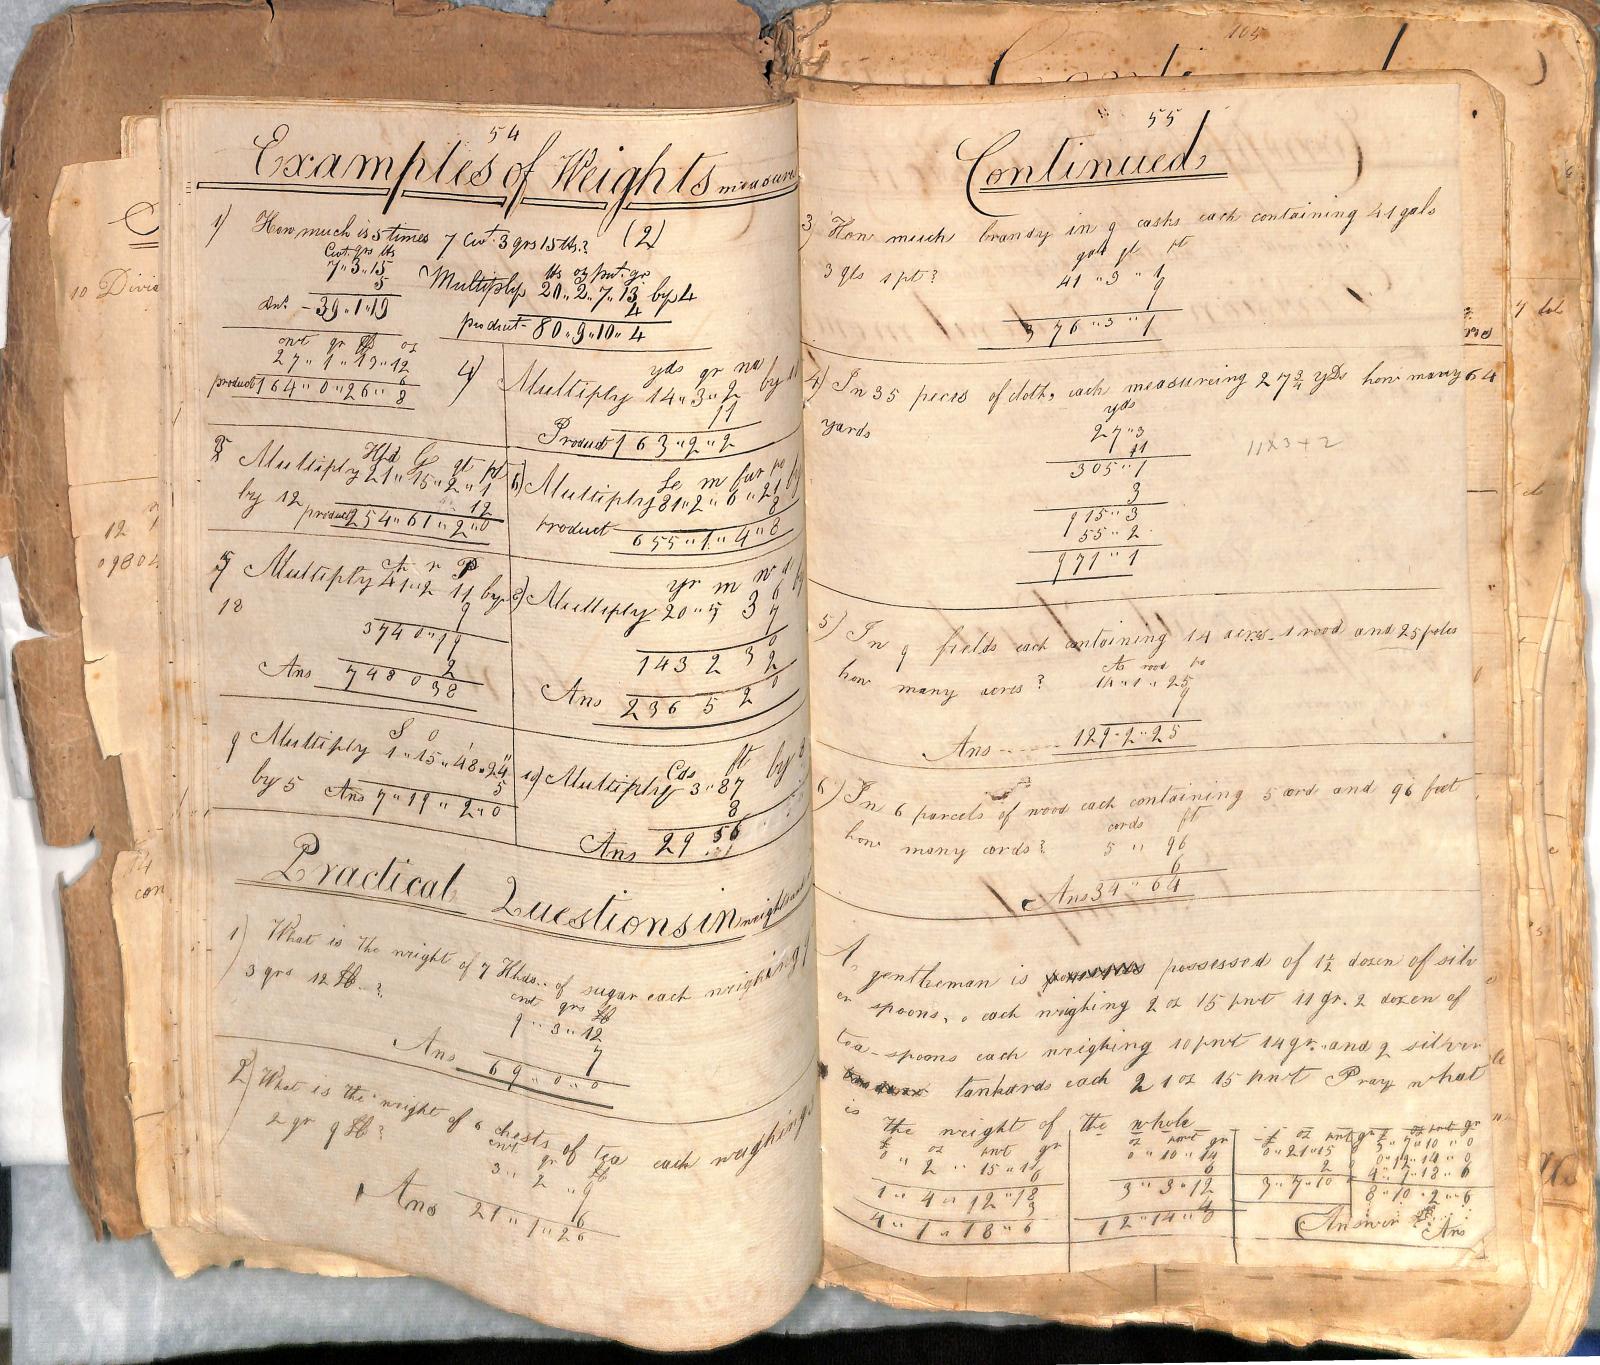 54
Examples of Weights measure
1) How much is 5 times 7 Cwt. 3 qrs 15 lbs.?
Cwt. qrs lbs
7 " 3 " 15
5
Ans. - 39 " 1 " 19
(2)
Multiply
lbs oz pwt. gr
20 " 2 " 7 " 13 by 4
4
product - 80 " 9 " 10 " 4
cwt qr lb oz
27 " 1 " 13 " 12
6
product 164 " 0 " 26 " 8
4)
yds qr na
Multiply 14 " 3 " 2 by 11
11
Product 163 " 2 " 2
5
Hhd G qt pt
Multiply 21 " 15 " 2 " 1
by 12
12
product 254 " 61 " 2 " 0
6)
Le m fur po
Multiply 81 " 2 " 6 " 21 by
8
product 655 " 1 " 4 " 8
7
A r P
Multiply 41 " 2 11 by
18
9
374 0 " 19
2
Ans 748 0 38
8)
yr m w d
Multiply 20 " 5 3 6
7
143 2 3 0
2
Ans 236 5 2 0
9
S o
Multiply 1 " 15 " 48 " 24
by 5
5
Ans 7 " 19 " 2 " 0
10)
Cds ft
Multiply 3 " 87 by 8
8
Ans 29 56
Practical Questions in weights
1) What is the weight of 7 Hhds. of sugar each weighing 9
3 qrs 12 lb.?
cwt qrs lb
9 " 3 " 12
7
Ans 69 " 0 " 0
2) What is the weight of 6 chests of tea each weighing 3
2 qr 9 lb?
cwt qr lb
3 " 2 " 9
6
Ans 21 " 1 " 26
104
55
Continued,
3) How much brandy in 9 casks each containing 41 gals
3 qts 1 pt?
gals qt pt
41 " 3 " 1
9
376 " 3 " 1
4) In 35 peces of cloth, each measureing 27 3/4 yds how many
yards
yds
27 " 3
11
305 " 1
3
915 " 3
55 " 2
971 " 1
11x3+2
5) In 9 fields each containing 14 acres 1 rood and 25 poles
how many acres?
As rood po
14 " 1 " 25
9
Ans 129 " 2 " 25
6) In 6 parcels of wood each containing 5 cord and 96 feet
how many cords?
cords ft
5 " 96
6
Ans 34 " 64
A gentleman is possessed of 1 1/2 dozen of silv
er spoons, each weighing 2 oz 15 pwt 11 gr. 2 dozen of
tea-spoons each weighing 10 pwt 14 gr. and 2 silver
tankards each 21 oz 15 pwt Pray what
is the weight of the whole
£ oz pwt gr
0 " 2 " 15 " 11
6
1 " 4 " 12 " 18
3
4 " 1 " 18 " 6
oz pwt gr
0 " 10 " 14
6
3 " 3 " 12
4
12 " 14 " 0
£ oz pwt gr
0 " 21 " 15
2
3 " 7 " 10
£ oz pwt gr
3 " 7 " 10 " 0
4 " 1 " 18 " 6
8 " 10 " 2 " 6
Answer
Ans